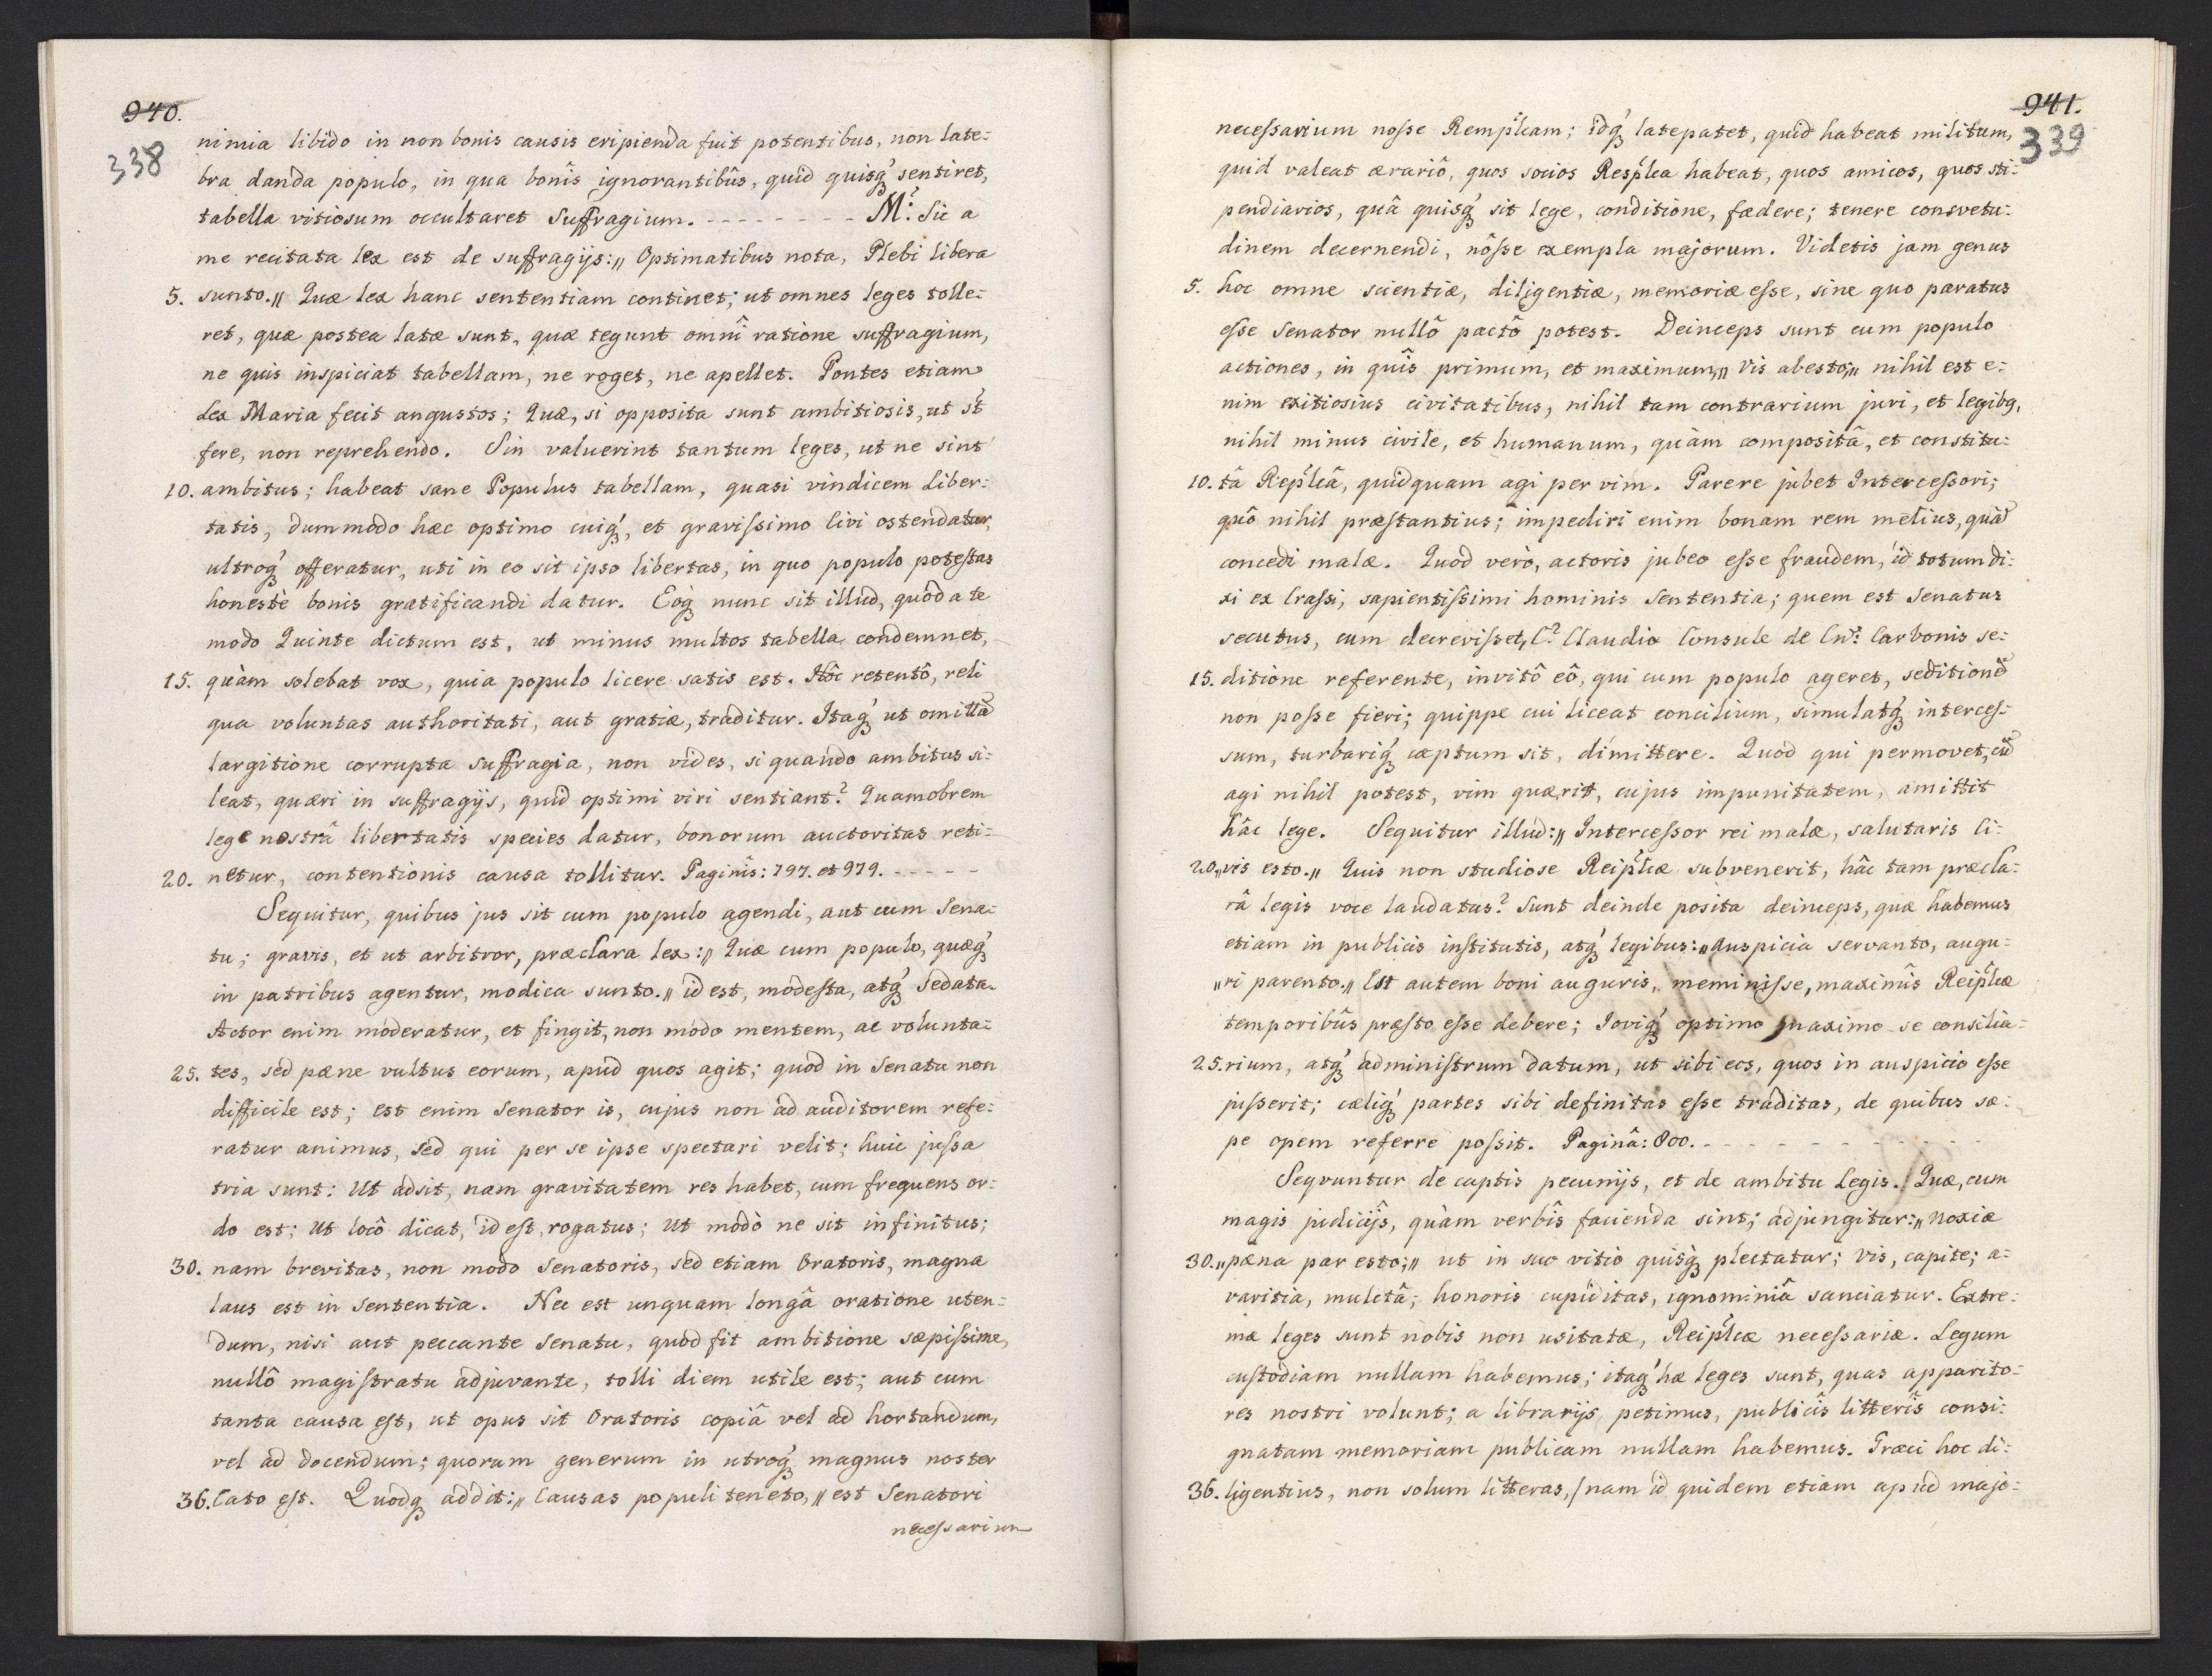 940.
338
nimia libido in non bonis causis eripienda fuit potentibus, non late:
bra danda populo, in qua bonis ignorantibûs, quid quisq́ sentiret,
tabella vitiosum occultaret Suffragium. - - - - - - - - M: Sic a
me recitata lex est de suffragijs:„ Optimatibus nota, Plebi libera
5. sunto.„ Quæ lex hanc sententiam continet; ut omnes leges tolle:
ret, quæ postea latæ sunt, quæ tegunt omni ratione suffragium,
ne quis inspiciat tabellam, ne roget, ne apellet. Pontes etiam
Lex Maria fecit angustos; Quæ, si opposita sunt ambitiosis, ut st́
fere, non reprehendo. Sin valuerint tantum leges, ut ne sint
10. ambitus; habeat sane Populus tabellam, quasi vindicem Liber:
tatis, dummodo hæc optimo cuiq́, et gravissimo Civi ostendatur,
ultroq́ offeratur, uti in eo sit ipso libertas, in quo populo potestas
honestè bonis gratificandi datur. Eoq́ nunc sit illud, quod a te
modo Quinte dictum est, ut minus multos tabella condemnet,
15. quàm solebat vox, quia populo licere satis est. Hôc retentô, reli
qua voluntas authoritati, aut gratiæ, traditur. Itaq́ ut omittã
largitione corrupta suffragia, non vides, si quando ambitus si:
leat, quæri in suffragijs, quid optimi viri sentiant? Quamobrem
lege nostrâ libertatis species datur, bonorum auctoritas reti:
20. netur, contentionis causa tollitur. Paginîs: 797. et 979. - - - - -
Sequitur, quibus jus sit cum populo agendi, aut cum Sena:
tu; gravis, et ut arbitror, præclara lex:„ Quæ cum populo, quæq́
in patribus agentur, modica sunto.„ id est, modesta, atq́ sedata.
Actor enim moderatur, et fingit, non modo mentem, ac volunta:
25. tes, sed pæne vultus eorum, apud quos agit; quod in Senatu non
difficile est; est enim Senator is, cujus non ad auditorem refe:
ratur animus, sed qui per se ipse spectari velit; huic jussa
tria sunt: Ut adsit, nam gravitatem res habet, cum frequens or:
do est; Ut locô dicat, id est, rogatus; Ut modò ne sit infinitus;
30. nam brevitas, non modo Senatoris, sed etiam Oratoris, magna
laus est in Sententia. Nec est unquam longâ oratione uten:
dum, nisi aut peccante Senatu, quod fit ambitione sæpissime,
nullô magistratu adjuvante, tolli diem utile est; aut cum
tanta causa est, ut opus sit Oratoris copiâ vel ad hortandum,
vel ad docendum; quorum generum in utroq́ magnus noster
36. Cato est. Quodq addit:„ Causas populi teneto,„ est Senatori
necessarium
941.
339
necessarium nosse Remp̃lcam; idq́ latepatet, quid habeat militum,
quid valeat ærariô, quos socios Resp̃lca habeat, quos amicos, quos sti:
pendiarios, quâ quisq́ sit lege, conditione, fædere; tenere consvetu:
dinem decernendi, nôsse exempla majorum. Videtis jam genus
5. hoc omne scientiæ, diligentiæ, memoriæ esse, sine quo paratus
esse Senator nullô pactô potest. Deinceps sunt cum populo
actiones, in quîs primum, et maximum,„ Vis abesto;„ nihil est e:
nim exitiosius civitatibus, nihil tam contrarium juri, et legibq,
nihil minus civile, et humanum, quàm compositâ, et constitu:
10. tâ Rep̃lcâ, quidquam agi per vim. Parere jubet Intercessori;
quô nihil præstantius; impediri enim bonam rem melius, quã
concedi malæ. Quod verò, actoris jubeo esse fraudem, id totum di:
xi ex Crassi, sapientissimi hominis Sententia; quem est Senatus
secutus, cum decrevisset, C. Claudio Consule de Cn: Carbonis se:
15. ditione referente, invitô eô, qui cum populo ageret, seditionẽ
non posse fieri; quippe cui liceat concilium, simulatq́ interces:
sum, turbariq́ cæptum sit, dimittere. Quod qui permovet, cũ
agi nihil potest, vim quærit, cujus impunitatem, amittit
hâc lege. Sequitur illud:„ Intercessor rei malæ, salutaris Ci:
20. „vis esto.„ Quis non studiose Reip̃lcæ subvenerit, hâc tam præcla:
râ legis voce laudatus? Sunt deinde posita deinceps, quæ habemus
etiam in publicis institutis, atq́ legibus:„ Auspicia servanto, augu:
„ri parento.„ Est autem boni auguris, meminisse, maximîs Reip̃lcæ
temporibûs præsto esse debere; Joviq́ optimo maximo se consilia:
25. rium, atq́ administrum datum, ut sibi eos, quos in auspicio esse
jusserit; cæliq́ partes sibi definitas esse traditas, de quibus sæ:
pe opem referre possit. Paginâ: 800. - - - - - - - - - -
Seqvuntur de captis pecunijs, et de ambitu Legis. Quæ, cum
magis judicijs, quàm verbis facienda sint; adjungitur:„ noxiæ
30. „pæna par esto;„ ut in suo vitio quisq́ plectatur; vis, capite; a:
varitia, mulctâ; honoris cupiditas, ignominiâ sanciatur. Extre:
mæ leges sunt nobis non usitatæ, Reip̃lcæ necessariæ. Legum
custodiam nullam habemus; itaq́ hæ leges sunt, quas apparito:
res nostri volunt; a librarijs petimus, publicis litterîs consi:
gnatam memoriam publicam nullam habemus. Græci hoc di:
36. ligentius, non solum litteras, /nam id quidem etiam apud majo: